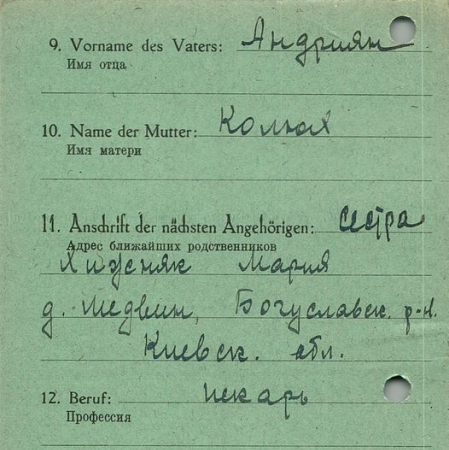 9. Vorname des Vaters: Андриян
Имя отца
10. Name der Mutter: Колюх
Имя матери
11. Anschrift der nächsten Angehörigen: сестра
Адрес ближайших родственников
Хижсняк Мария
д. Медвин, Богуславск. р-н.
Киевск. обл.
12. Beruf: пекарь
Профессия